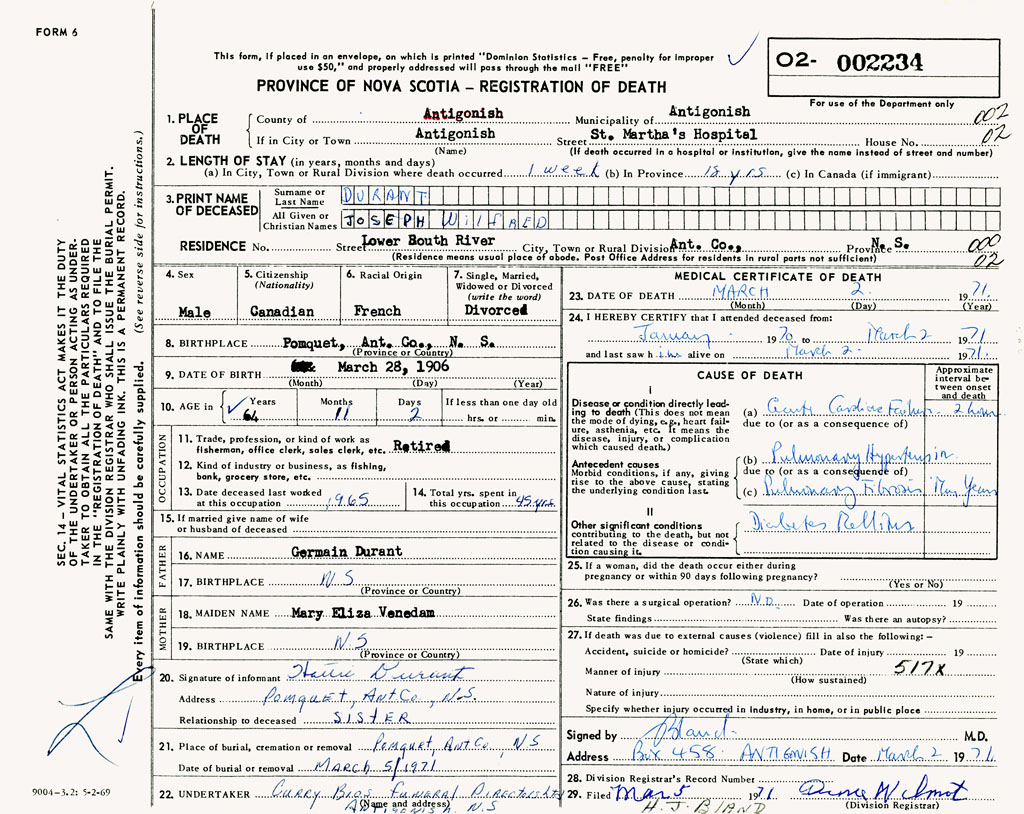 FORM 6
This form, if placed in an envelope, on which is printed "Dominion Statistics – Free, penalty for improper
use $50," and properly addressed will pass through the mail "FREE"
02- 002234
For use of the Department only
PROVINCE OF NOVA SCOTIA – REGISTRATION OF DEATH
1. PLACE OF DEATH
County of Antigonish Municipality of Antigonish 002
If in City or Town Antigonish Street St. Martha's Hospital House No. 02
(Name) (If death occurred in a hospital or institution, give the name instead of street and number)
2. LENGTH OF STAY (in years, months and days)
(a) In City, Town or Rural Division where death occurred 1 week (b) In Province 18 yrs (c) In Canada (if immigrant)
3. PRINT NAME OF DECEASED
Surname or Last Name DURANT
All Given or Christian Names JOSEPH WilfRED
RESIDENCE No. Street Lower South River City, Town or Rural Division Ant. Co., Province N. S. 000
(Residence means usual place of abode. Post Office Address for residents in rural parts not sufficient) 02
4. Sex
Male
5. Citizenship
(Nationality)
Canadian
6. Racial Origin
French
7. Single, Married,
Widowed or Divorced
(write the word)
Divorced
8. BIRTHPLACE Pomquet, Ant. Co., N. S.
(Province or Country)
9. DATE OF BIRTH March 28, 1906
(Month) (Day) (Year)
10. AGE in Years Months Days If less than one day old
64 11 2 hrs. or min.
OCCUPATION
11. Trade, profession, or kind of work as
fisherman, office clerk, sales clerk, etc. Retired
12. Kind of industry or business, as fishing,
bank, grocery store, etc.
13. Date deceased last worked
at this occupation 1965
14. Total yrs. spent in
this occupation 45 yrs.
15. If married give name of wife
or husband of deceased
FATHER
16. NAME Germain Durant
17. BIRTHPLACE N.S
(Province or Country)
MOTHER
18. MAIDEN NAME Mary Eliza Venedam
19. BIRTHPLACE N.S
(Province or Country)
20. Signature of informant Hattie Durant
Address Pomquet, Ant Co, N.S.
Relationship to deceased SISTER
21. Place of burial, cremation or removal Pomquet, Ant Co, NS
Date of burial or removal MARCH 5/1971
22. UNDERTAKER Curry Bros Funeral Directors
(Name and address) ANTIGONISH, N.S
MEDICAL CERTIFICATE OF DEATH
23. DATE OF DEATH MARCH 2 1971.
(Month) (Day) (Year)
24. I HEREBY CERTIFY that I attended deceased from:
January 1970 to March 2 1971
and last saw him alive on March 2 1971.
CAUSE OF DEATH
Approximate
interval be-
tween onset
and death
I
Disease or condition directly lead-
ing to death (This does not mean
the mode of dying, e.g., heart fail-
ure, asthenia, etc. It means the
disease, injury, or complication
which caused death.)
(a) Acute Cardiac Failure. 2 hours
due to (or as a consequence of)
Antecedent causes
Morbid conditions, if any, giving
rise to the above cause, stating
the underlying condition last.
(b) Pulmonary Hypertension
due to (or as a consequence of)
(c) Pulmonary Fibrosis Many Years
II
Other significant conditions
contributing to the death, but not
related to the disease or condi-
tion causing it.
Diabetes Mellitus
25. If a woman, did the death occur either during
pregnancy or within 90 days following pregnancy?
(Yes or No)
26. Was there a surgical operation? NO. Date of operation 19
State findings Was there an autopsy?
27. If death was due to external causes (violence) fill in also the following: –
Accident, suicide or homicide? Date of injury 19
(State which)
Manner of injury 517X
(How sustained)
Nature of injury
Specify whether injury occurred in industry, in home, or in public place
Signed by Bland M.D.
Address Box 458 ANTIGONISH Date March 2 1971.
28. Division Registrar's Record Number
29. Filed Mar 5 1971
H. J. BLAND (Division Registrar)
SEC. 14 – VITAL STATISTICS ACT MAKES IT THE DUTY
OF THE UNDERTAKER OR PERSON ACTING AS UNDER-
TAKER TO OBTAIN ALL THE PARTICULARS REQUIRED
IN THE "REGISTRATION OF DEATH" AND TO FILE THE
SAME WITH THE DIVISION REGISTRAR WHO SHALL ISSUE THE BURIAL PERMIT.
WRITE PLAINLY WITH UNFADING INK. THIS IS A PERMANENT RECORD.
Every item of information should be carefully supplied. (See reverse side for instructions.)
9004-3.2: 5-2-69